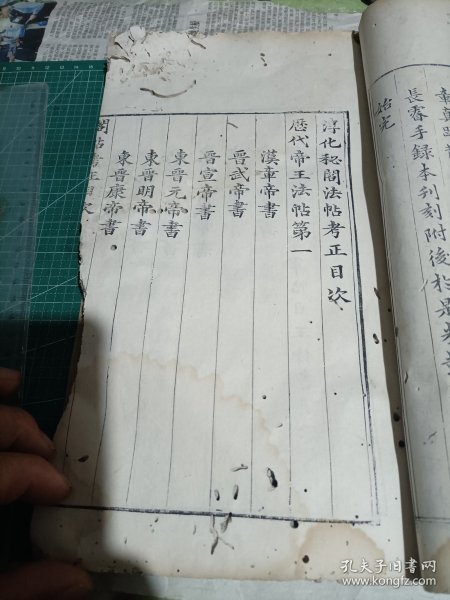 章草
長睿手録本刋刻附後於是
始完
淳化秘閣法帖考正目次
歴代帝王法帖第一
漢章帝書
晋武帝書
晋宣帝書
東晋元帝書
東晋明帝書
東晋康帝書
閣帖考正目次
孔夫子旧书网
www.kongfz.com